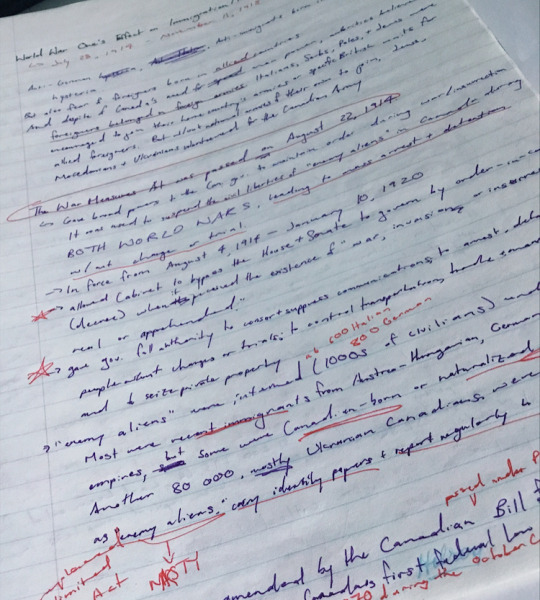 World War One's Effect on Immigration/
July 28, 1914 - November 11, 1918
Anti-German hysteria. Anti-immigrant
hysteria
But also from foreigners born in allied countries
And despite Canada's need for man power, authorities
foreigners belonged in foreign armies. Italians, Serbs, Poles, + Jews were
encouraged to join their home country's armies or specific British units for
allied foreigners. But allowed natural enemies of their own to join,
Macedonians + Ukrainians volunteered for the Canadian Army
The War Measures Act was passed on August 22, 1914
↳ Gave broad powers to the Can. gov. to maintain order during war/insurrection
It was used to suspend the civil liberties of "enemy aliens" in Canada during
BOTH WORLD WARS, leading to mass arrest + detentions
w/out charge or trial
→ In force from August 4, 1914 - January 10, 1920
→ allowed Cabinet to bypass the House + Senate to govern by order-in-
(decree) when it perceived the existence of "war, invasion, or insurrec
real or apprehended."
→ gave gov. full authority to censor + suppress communications, to arrest, det
people without charges or trials, to control transportation, trade + manu
and to seize private property
600 Italian
800 German
→ "enemy aliens" were interned (1000s of civilians)
Most were recent immigrants from Austro-Hungarian, German
empires, but some were Canadian-born or naturalized
Another 80 000, mostly Ukrainian Canadians, were
as "enemy aliens." carry identity papers + report regularly to
limited
Act
NASTY
passed under
mended by the Canadian Bill
Canada's first federal law
70 during the October C